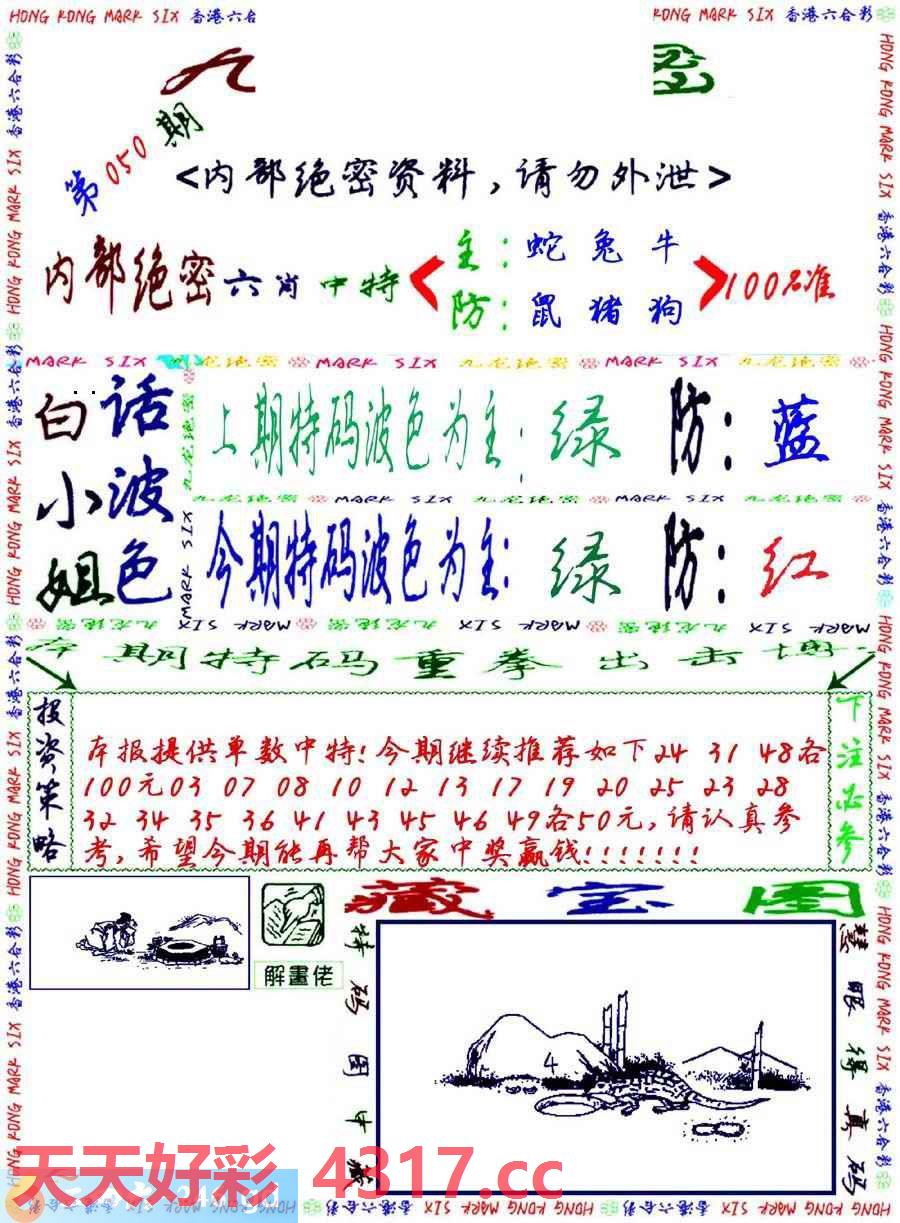 HONG KONG MARK SIX 香港六合
KONG MARK SIX 香港六合彩
九
第050期
<内部绝密资料,请勿外泄>
内部绝密六肖中特
主:蛇兔牛
防:鼠猪狗
100%准
MARK SIX 九龙绝密 MARK SIX 九龙绝密 MARK SIX 九龙绝密
白话
小波
姐色
上期特码波色为主:绿 防:蓝
九龙绝密 MARK SIX 九龙绝密 MARK SIX 九龙绝密
今期特码波色为主:绿 防:红
本期特码重拳出击博
投资策略
本报提供单数中特!今期继续推荐如下24 31 48各
100元03 07 08 10 12 13 17 19 20 25 23 28
32 34 35 36 41 43 45 46 49各50元,请认真参
考,希望今期能再帮大家中奖赢钱!!!!!!!
下注必参
解畫佬
藏宝图
特码图中藏
慧眼得真码
4
天天好彩 4317.cc